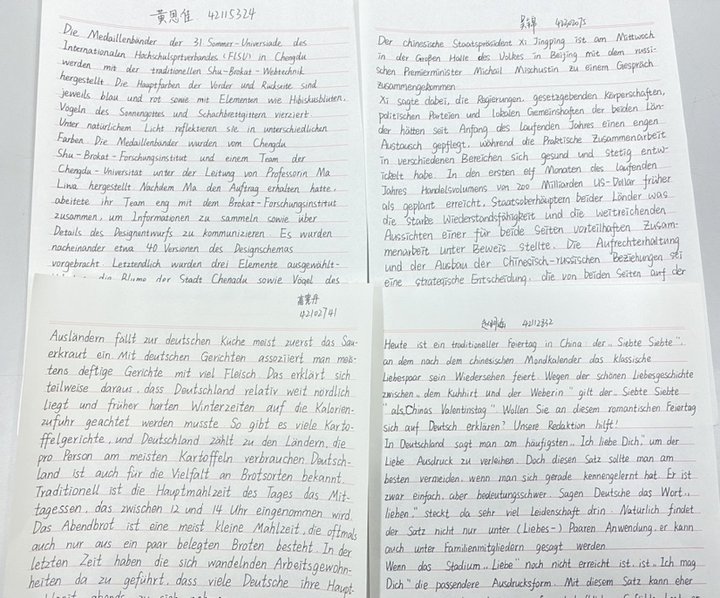 黄思佳 42115324
Die Medaillenbänder der 31 Sommer-Universiade des
Internationalen Hochschulsprtverbandes (FISU) in Chengdu
werden mit der traditionellen Shu-Brokat-Webtechnik
hergestellt. Die Hauptfarben der Vorder und Rückseite sind
jeweils blau und rot sowie mit Elementen wie Hibiskusblüten,
Vögeln des Sonnengottes und Schachbrettgittern verziert
Unter natürlichem Licht reflektieren sie in unterschiedlichen
Farben. Die Medaillenbänder wurden vom Chengdu
Shu-Brokat-Forschungsinstitut und einem Team der
Chengdu-Universität unter der Leitung von Professorin Ma
Lina hergestellt Nachdem Ma den Auftrag erhalten hatte,
abeitete ihr Team eng mit dem Brokat-Forschungsinstitut
zusammen, um Informationen zu sammeln sowie über
Details des Designentwurfs zu kommunizieren. Es wurden
nacheinander etwa 40 Versionen des Designschemas
vorgebracht Letztendlich wurden drei Elemente ausgewählt-
die Blume der Stadt Chengdu sowie Vögel des
吴锦 42202075
Der chinesische Staatspräsident Xi Jingping ist am Mittwoch
in der Großen Halle des Volkes in Beijing mit dem russi-
schen Premierminister Michail Mischustin zu einem Gespräch
zusammengekommen
Xi sagte dabei, die Regierungen, gesetzgebenden Körperschaften,
politischen Parteien und lokalen Gemeinshaften der beiden Län-
der hätten seit Anfang des laufenden Jahres einen engen
Austausch gepflegt, während die Praktische Zusammenarbeit
in verschiedenen Bereichen sich gesund und stetig entw-
ickelt habe. In den ersten elf Monaten des laufenden
Jahres Handelsvolumens von 200 Milliarden US-Dollar früher
als geplant erreicht, Staatsoberhäuptern beider Länder was
die starke Wiederstandsfähigkeit und die weitreichenden
Aussichten einer für beide Seiten vorteilhaften Zusam-
menarbeit unter Beweis stellte. Die Aufrechterhaltung
und der Ausbau der Chinesisch-russischen Beziehungen sei
eine strategische Entscheidung, die von beiden Seiten auf der
42102741
Ausländern fällt zur deutschen Küche meist zuerst das Sau-
erkraut ein. Mit deutschen Gerichten assoziiert man meis-
tens deftige Gerichte mit viel Fleisch. Das erklärt sich
teilweise daraus, dass Deutschland relativ weit nördlich
liegt und früher harten Winterzeiten auf die Kalorien-
zufuhr geachtet werden musste So gibt es viele Karto-
ffelgerichte, und Deutschland zählt zu den Ländern, die
pro Person am meisten Kartoffeln verbrauchen Deutsch-
land ist auch für die Vielfalt an Brotsorten bekannt.
Traditionell ist die Hauptmahlzeit des Tages das Mit-
tagessen, das zwischen 12 und 14 Uhr eingenommen wird.
Das Abendbrot ist eine meist kleine Mahlzeit, die oftmals
auch nur aus ein paar belegten Broten besteht. In der
letzten Zeit haben die sich wandelnden Arbeitsgewohn-
heiten da zu geführt, dass viele Deutsche ihre Haupt-
42112832
Heute ist ein traditioneller Feiertag in China: der „Siebte Siebte",
an dem nach dem chinesischen Mondkalender das klassische
Liebespaar sein Wiedersehen feiert. Wegen der schönen Liebesgeschichte
zwischen „dem Kuhhirt und der Weberin" gilt der „Siebte Siebte
" als „Chinas Valentinstag" Wollen Sie an diesem romantischen Feiertag
sich auf Deutsch erklären? Unsere Redaktion hilft!
In Deutschland sagt man am häufigsten „Ich liebe Dich", um der
Liebe Ausdruck zu verleihen. Doch diesen Satz sollte man am
besten vermeiden, wenn man sich gerade kennengelernt hat. Er ist
zwar einfach, aber bedeutungsschwer Sagen Deutsche das Wort „
lieben," steckt da sehr viel Leidenschaft drin. Natürlich findet
der Satz nicht nur unter (Liebes-) Paaren Anwendung, er kann
auch unter Familienmitgliedern gesagt werden
Wenn das Stadium „Liebe" noch nicht erreicht ist, ist „Ich mag
Dich" die passendere Ausdrucksform. Mit diesem Satz kann eher